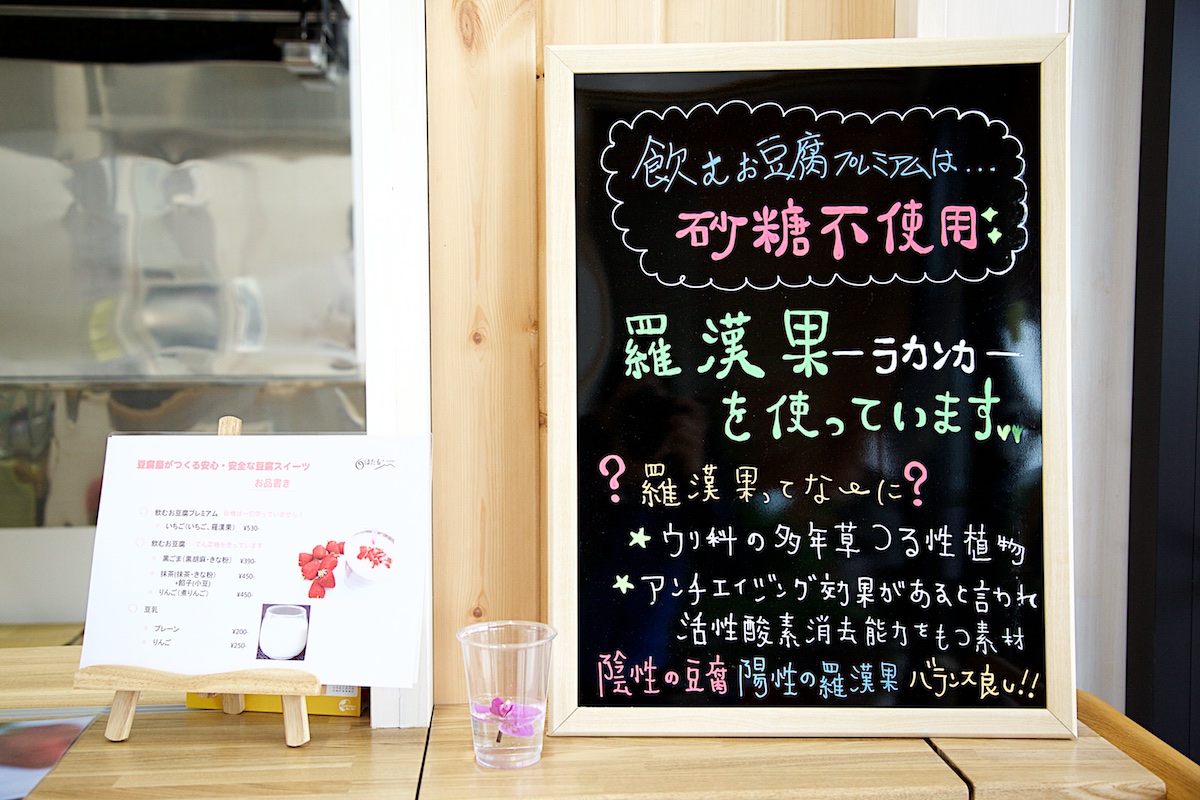 豆腐屋がつくる安心・安全な豆腐スイーツ
お品書き
ほたる
飲むお豆腐プレミアム
いちご(いちご、羅漢果) ¥530-
飲むお豆腐 てんさい糖を使っています
黒ごま(黒胡麻・きな粉) ¥390-
抹茶(抹茶・きな粉) ¥450-
+餡子(小豆)
りんご(煮りんご) ¥450-
豆乳
プレーン ¥200-
りんご ¥250-
飲むお豆腐プレミアムは...
砂糖不使用
羅漢果ーラカンカー
を使っています
?羅漢果ってな〜に?
ウリ科の多年草つる性植物
アンチエイジング効果があると言われ
活性酸素消去能力をもつ素材
陰性の豆腐 陽性の羅漢果 バランス良し!!